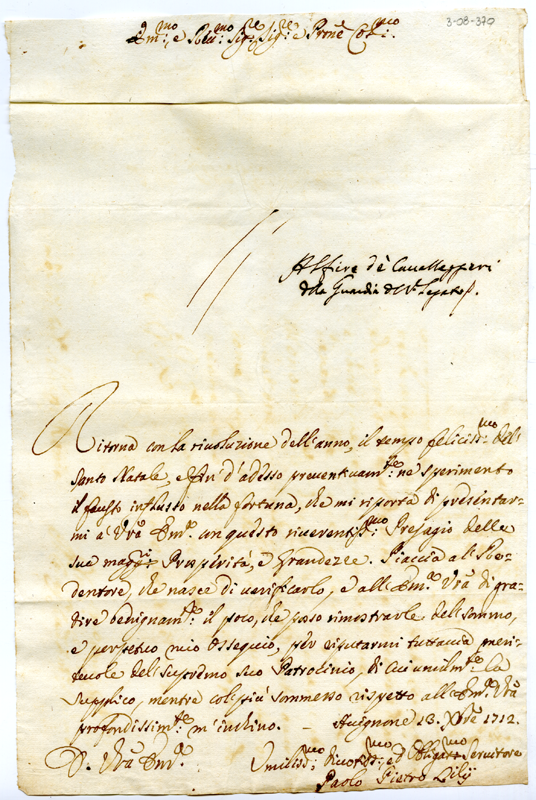 3-08-370
Em:mo, e Rev:mo Sig:re Sig:re e Prõne Col:mo
Alfiere dè Cavalleggeri
della Guardia di N.
Ritorna con la rivoluzione dell'anno, il tempo felicis:mo del
Santo Natale, e fin d'adesso preventivam:te ne sperimento
il fausto influsso nella fortuna, che mi riporta di presentar-
mi à Vrã Em:a con questo riverentis:mo Presagio delle
sue magg:ri Prosperità, e Grandezze. Piaccia al Re-
dentore, che nasce di verificarlo, e all'Em:a Vrã di gra-
dire benignam:te il poco, che posso rimostrarle del sommo,
e perpetuo mio ossequio, per riputarmi tuttavia meri-
tevole del supremo suo Patrocinio, di cui umilm:te la
supplico, mentre col più sommesso rispetto all'Em:a Vrã
profondissim:te m'inchino. Avignone 13. Xbre 1712.
D. Vrã Em:a
Umiliss:mo Divotiss:mo ed Obligat:mo Servitore
Paolo Pietro Lilÿ